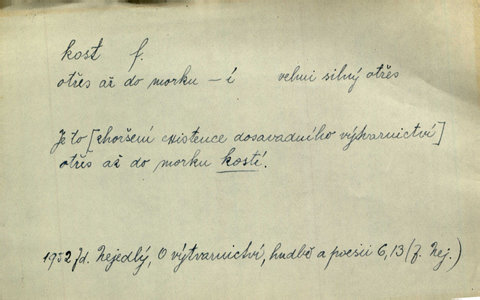 kost f.
otřes až do morku – í velmi silný otřes
Je to [zhoršení existence dosavadního výtvarnictví]
otřes až do morku kostí.
1952 Zd. Nejedlý, O výtvarnictví, hudbě a poesii 6, 13 (Z. Nej.)